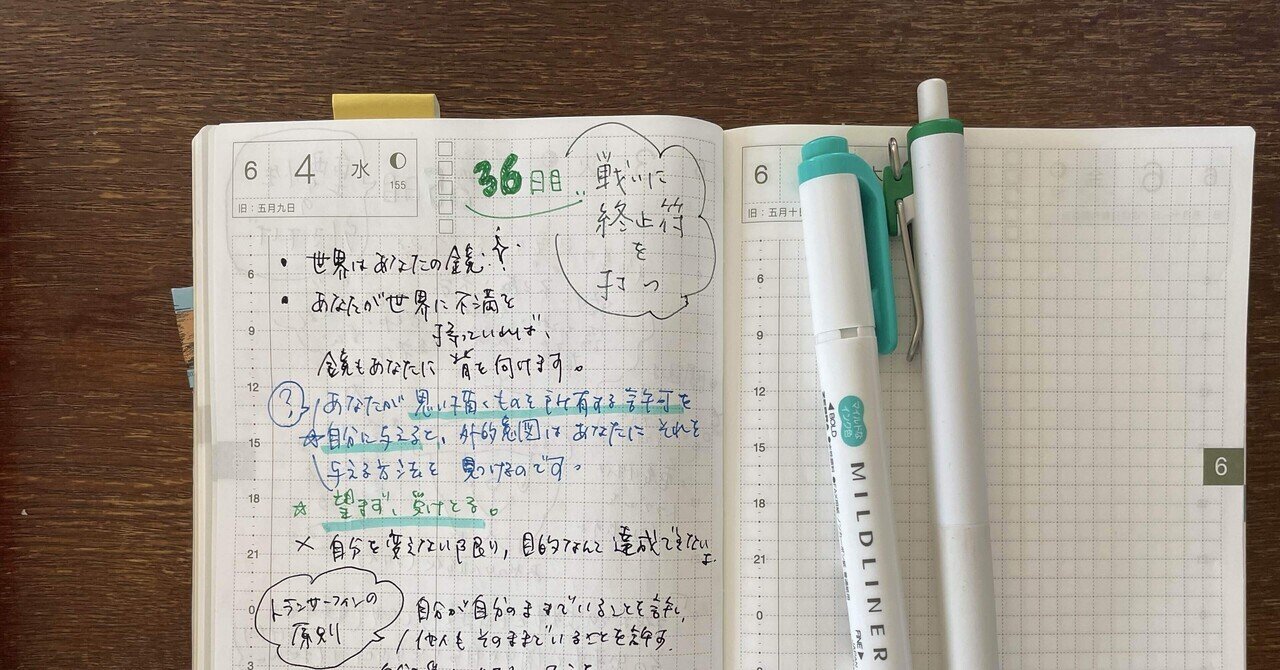 6 4 水
155
旧：五月九日
36日目
戦いに
終止符
を
打つ
• 世界はあなたの鏡!
• あなたが世界に不満を
持っていれば、
鏡もあなたに背を向けます。
? あなたが思い描くものを所有する許可を
☆自分に与えると、外的意図はあなたにそれを
与える方法を見つけるのです。
☆ 望まず、受けとる。
× 自分を変えない限り、目的なんて達成できないよ
トランサーフィンの
原則
自分が自分のままでいることを許し、
他人もそのままでいることを許す.
6
9
12
15
18
21
0
3
6
旧：五月十日
6
9
12
15
18
21
0
6
◀BOLD
マイルドな
インク色
MILDLINER
FINE▶